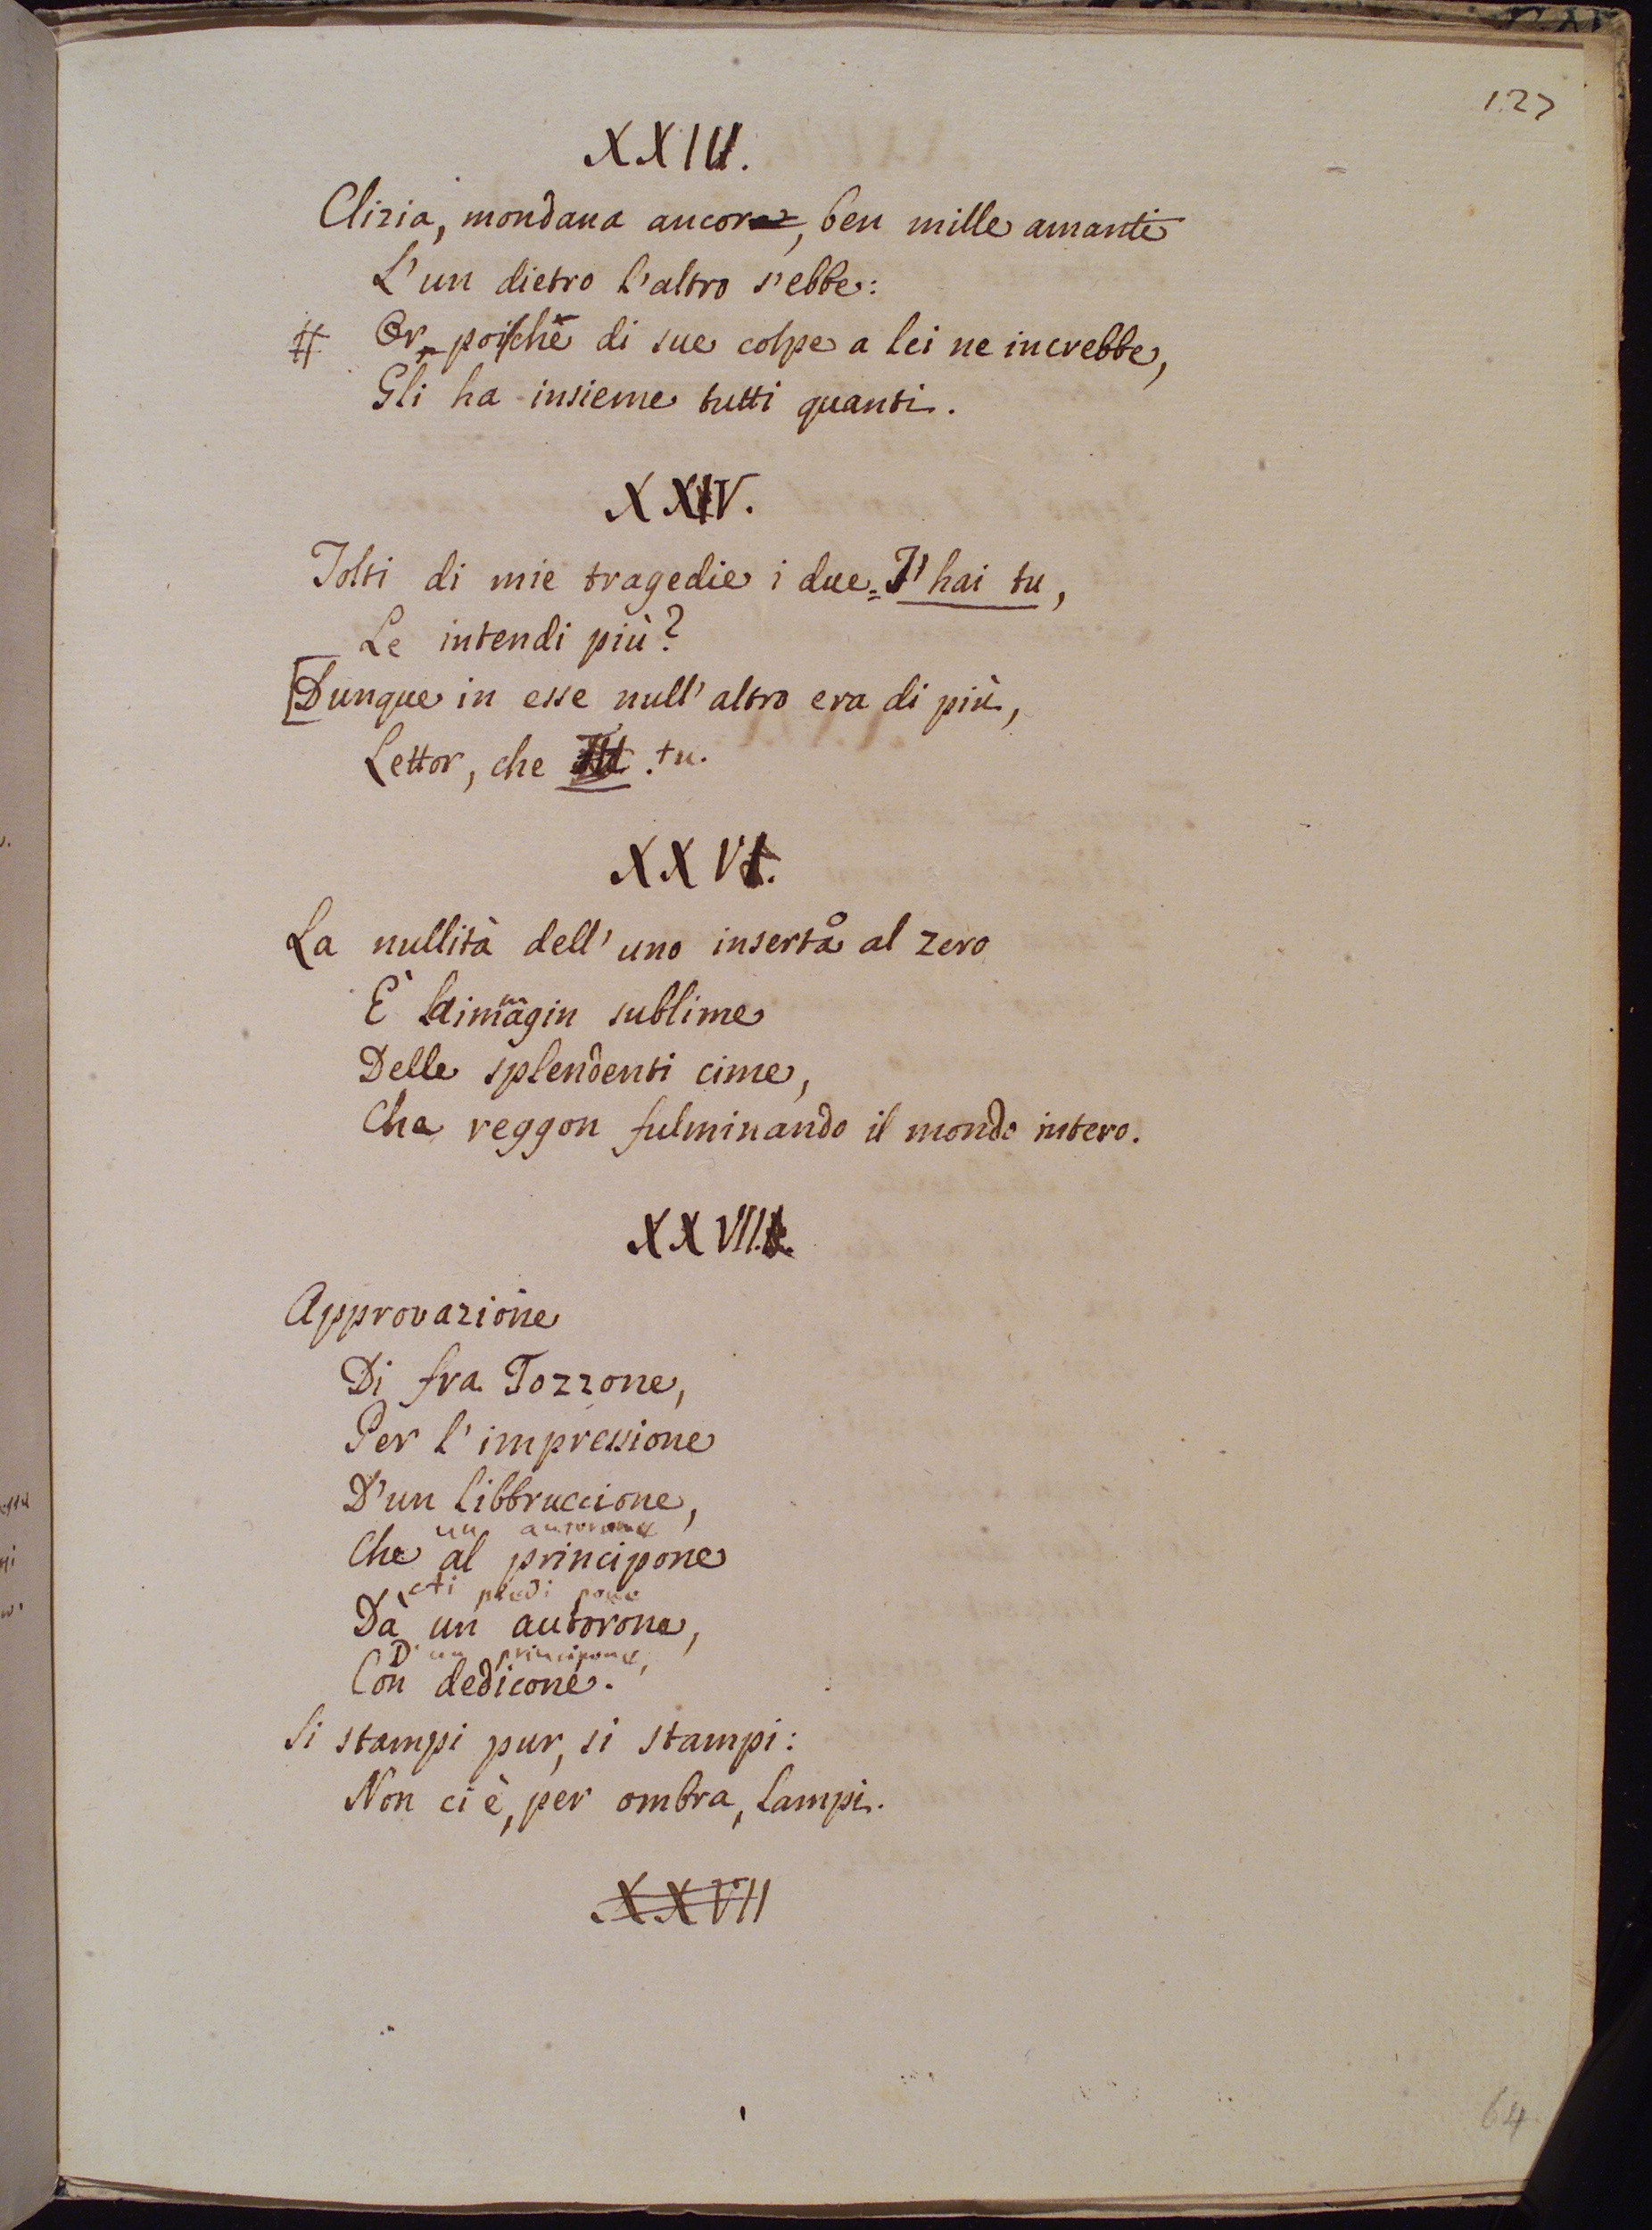 127
XXIV.
Clizia, mondana ancor, ben mille amanti
L'un dietro l'altro s'ebbe:
# Or, poichè di sue colpe a lei ne increbbe,
Gli ha insieme tutti quanti.
XXIV.
Tolti di mie tragedie i due = T'hai tu,
Le intendi più?
Dunque in esse null'altro era di più,
Lettor, che tu.
XXV.
La nullità dell'uno inserta al zero
È l'immagin sublime
Delle splendenti cime,
Che reggon fulminando il mondo intero.
XXVII.
Approvazione
Di fra Tozzone,
Per l'impressione
D'un libbruccione,
un autorone
Che al principone
piedi pone
Dà un autorone,
D'un principone,
Con dedicone.
Si stampi pur, si stampi:
Non ci è, per ombra, lampi.
XXVII
64